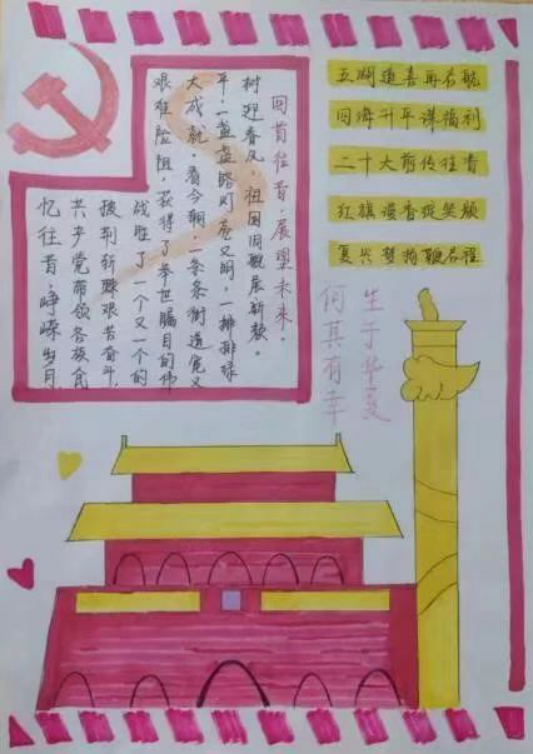 回首往昔，展望未来。
忆往昔，峥嵘岁月，
共产党带领各族
披荆斩棘艰苦奋斗，
战胜了一个又一个的
艰难险阻，获得了举世瞩目的伟
大成就。看今朝，一条条街道宽又
平，一盏盏路灯亮又明，一排排绿
树迎春风。祖国旧貌展新颜。
五湖道喜再启航
四海升平谋福利
二十大前传佳音
红旗漫卷绽笑颜
复兴梦扬鞭启程
生于华夏
何其有幸